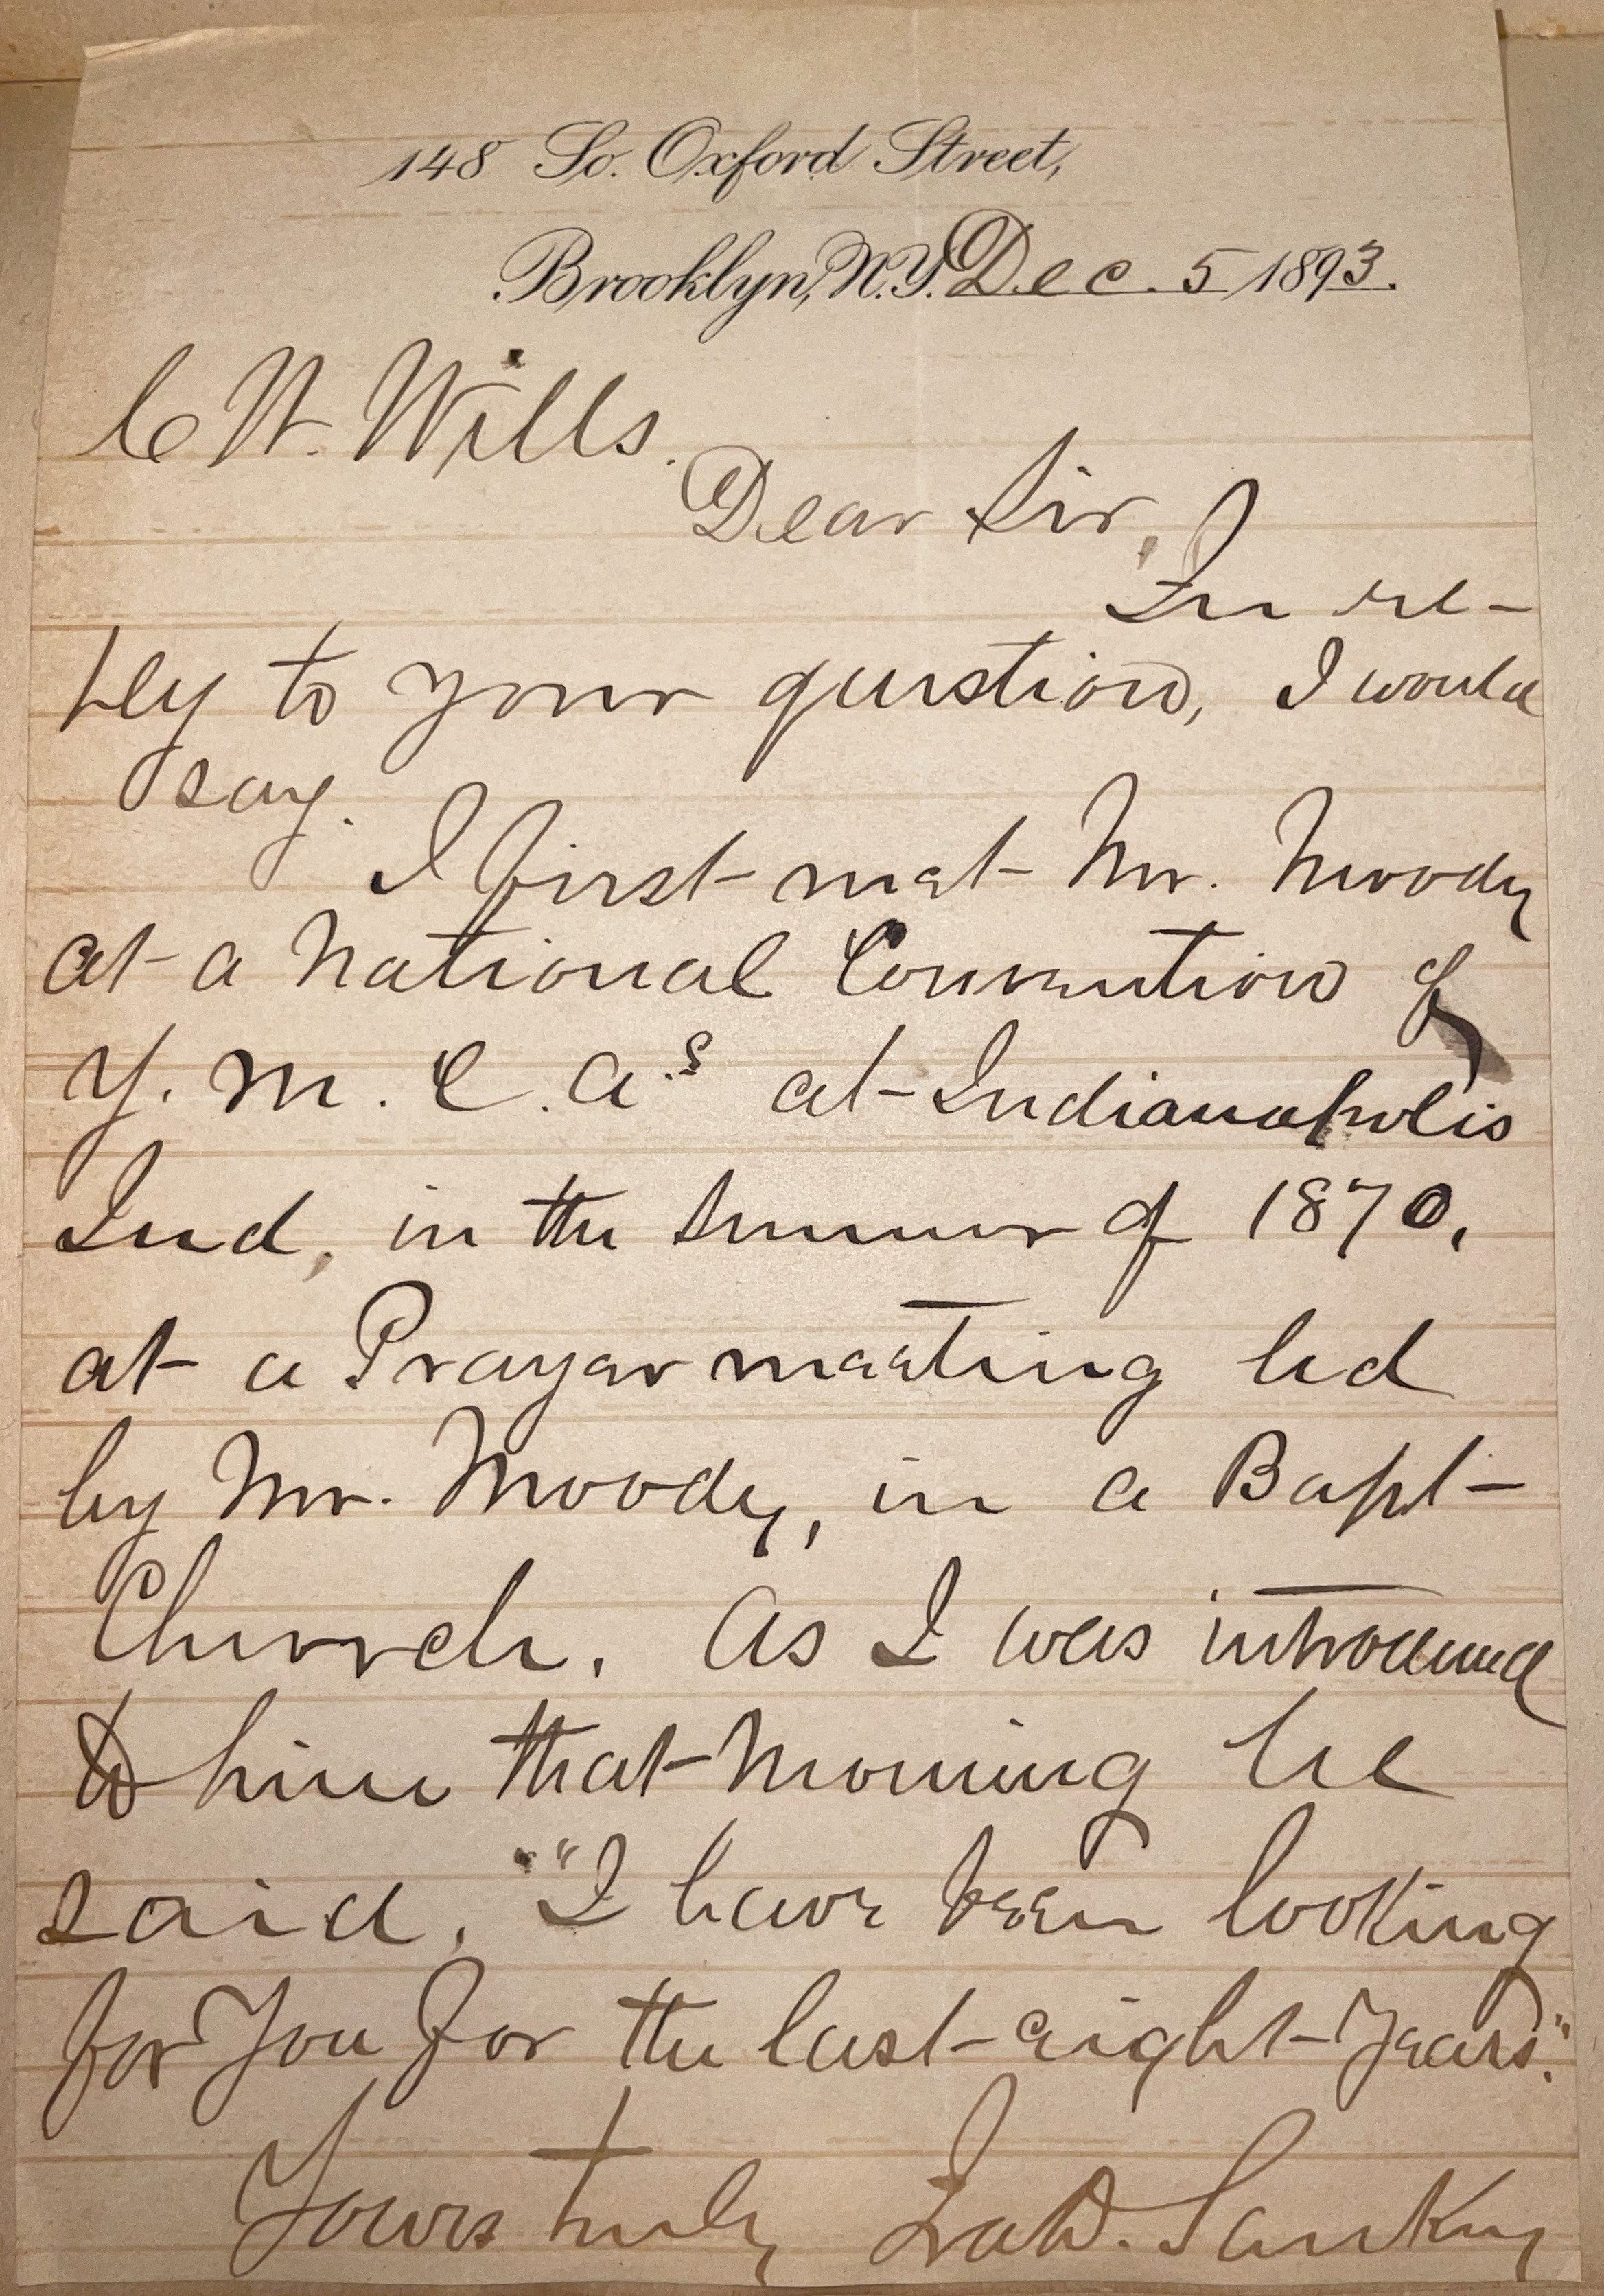 148 So. Oxford Street,
Brooklyn, N.Y. Dec. 5 1893.
C W. Wills.
Dear Sir,
In re-
ply to your question, I would
say.
I first met Mr. Moody
at a National Convention of
Y. M. C. A.s at Indianapolis
Ind, in the Summer of 1870,
at a Prayer meeting led
by Mr. Moody, in a Bapt
Church. As I was introduced
to him that morning he
said, "I have been looking
for You for the last eight Years."
Yours truly Ira D. Sankey